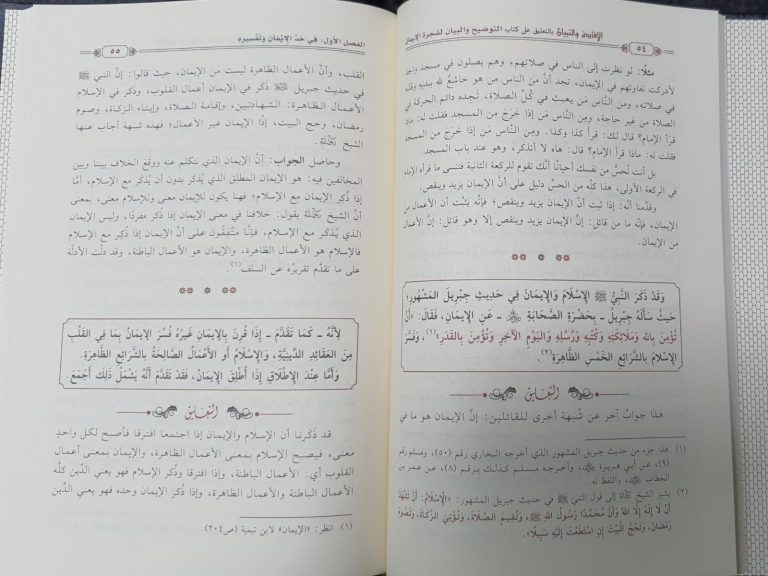 ٥٤
الإفادة والتبيان بالتعليق على كتاب التوضيح والبيان لشجرة الإيمان
مثلًا: لو نظرت إلى الناس في صلاتهم، وهم يصلون في مسجد واحد
لأدركت تفاوتهم في الإيمان، تجد أنَّ من الناس من هو خاشعٌ لله ببدنه وقلبه
في صلاته، ومن النَّاس مَن يعبث في كُلِّ الصلاة، تجده دائم الحركة في
الصلاة من غير حاجة، ومِن النَّاس مَن إذا خَرَجَ من المسجد فقلت له: ماذا
قرَأ الإمام؟ قال لك: قرأ كذا وكذا. ومِن النَّاس مَن إذا خَرَجَ من المسجد
فقلت له: ماذا قرأ الإمام؟ قال: هاه لا أتذكر، وهو عند باب المسجد.
بل أنت تُحسُّ من نفسك أحيانًا أنَّك تقوم للركعة الثانية فتنسى ما قرأه الإمام
في الركعة الأولى، هذا كلّه من الحسِّ دليل على أنَّ الإيمان يزيد وينقص.
وقدَّمنا أنه: إذا ثبت أنَّ الإيمان يزيد وينقص؛ فإنَّه يَثبُت أن الأعمال من
الإيمان، فإنَّه ما من قائل: إنَّ الإيمان يزيد وينقص إلا وهو قائل: إنَّ الأعمال
من الإيمان.
وَقَدْ ذَكَرَ النَّبِيُّ ﷺ الإِسْلَامَ وَالإِيمَانَ فِي حَدِيثِ جِبْرِيلَ المَشْهُورِ؛
حَيثُ سَأَلَهُ جِبْرِيلُ - بِحَضْرَةِ الصَّحَابَةِ ﵃ - عَنِ الإِيمَانِ، فَقَالَ: «أَنْ
تُؤْمِنَ بِاللهِ وَمَلَائِكَتِهِ وَكُتُبِهِ وَرُسُلِهِ وَاليَوْمِ الآخِرِ وَتُؤْمِنَ بِالقَدَرِ»(١)، وَفَسَّرَ
الإِسْلَامَ بِالشَّرَائِعِ الخَمْسِ الظَّاهِرَةِ(٢).
التعليق
هذا جوابٌ آخر عن شُبهة أخرى للقائلين: إنَّ الإيمان هو ما في
(١) هذا جزء من حديث جبريل المشهور الذي أخرجه البخاري رقم (٥٠)، ومسلم رقم
(٩)، عن أبي هريرة ﵁، وأخرجه مسلم كذلك برقم (٨)، عن عمر بن
الخطاب ﵁، واللفظ له.
(٢) يشير الشيخ ﵀ إلى قول النبي ﷺ في حديث جبريل المشهور: «الإِسْلَامُ: أَنْ تَشْهَدَ
أَنْ لَا إِلَهَ إِلَّا اللهُ وَأَنَّ مُحَمَّدًا رَسُولُ اللهِ ﷺ، وَتُقِيمَ الصَّلَاةَ، وَتُؤْتِيَ الزَّكَاةَ، وَتَصُومَ
رَمَضَانَ، وَتَحُجَّ الْبَيْتَ إِنِ اسْتَطَعْتَ إِلَيْهِ سَبِيلًا».
الفصل الأول: في حد الإيمان وتفسيره
٥٥
القلب، وأنَّ الأعمال الظاهرة ليست من الإيمان، حيث قالوا: إنَّ النبي ﷺ
في حديث جبريل ﵇ ذَكَر في الإيمان أعمال القلوب، وذكَر في الإسلام
الأعمال الظاهرة: الشهادتين، وإقامة الصلاة، وإيتاء الزكاة، وصوم
رمضان، وحج البيت، إذًا الإيمان غير الأعمال؛ فهذه شبهة أجاب عنها
الشيخ ﵀.
وحاصل الجواب: أنَّ الإيمان الذي نتكلم عنه ووقع الخلاف بيننا وبين
المخالفين فيه: هو الإيمان المطلق الذي يُذكر بدون أن يُذكر مع الإسلام، أمَّا
إذا ذُكر الإيمان مع الإسلام؛ فهنا يكون للإيمان معنى وللإسلام معنى، بمعنى
أنَّ الشيخ ﵀ يقول: خلافنا في معنى الإيمان إذا ذُكر مفردًا، وليس الإيمان
الذي يُذكَر مع الإسلام، فإنَّا متَّفقُون على أنَّ الإيمان إذا ذُكِر مع الإسلام
فالإسلام هو الأعمال الظاهرة، والإيمان هو الأعمال الباطنة، وقد دلَّت الأدلَّة
على ما تقدَّم تقريرُه عن السلف(١).
لِأَنَّهُ - كَمَا تَقَدَّمَ - إِذَا قُرِنَ بِالإِيمَانِ غَيْرُهُ فُسِّرَ الإِيمَانُ بِمَا فِي القَلْبِ
مِنَ العَقَائِدِ الدِّينِيَّةِ، وَالإِسْلَامُ أَوِ الأَعْمَالُ الصَّالِحَةُ بِالشَّرَائِعِ الظَّاهِرَةِ.
وَأَمَّا عِنْدَ الإِطْلَاقِ إِذَا أُطْلِقَ الإِيمَانُ، فَقَدْ تَقَدَّمَ أَنَّهُ يَشْمَلُ ذَلِكَ أَجْمَعَ.
التعليق
قد ذكَرنا أن الإسلام والإيمان إذا اجتمعا افترقا فأصبح لكل واحدٍ
معنى، فيصبح الإسلام بمعنى الأعمال الظاهرة، والإيمان بمعنى أعمال
القلوب أي: الأعمال الباطنة، وإذا افترقا وذُكر الإسلام فهو يعني الدِّين كلَّه
الأعمال الباطنة والأعمال الظاهرة، وإذا ذُكرَ الإيمان وحده فهو يعني الدِّين
(١) انظر: «الإيمان» لابن تيمية (ص٢٠٤).